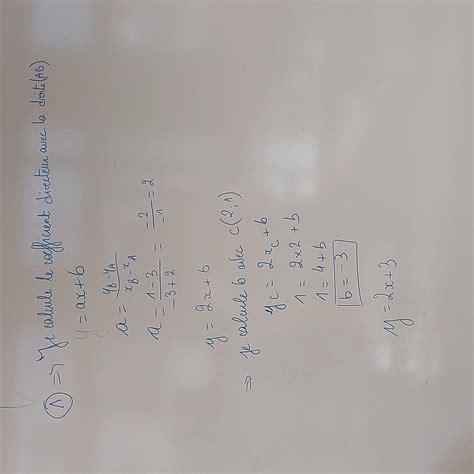 ① => Je calcule le coefficient directeur avec la droite (AB)
y = ax + b
a = (yB - yA) / (xB - xA)
a = (1 - 3) / (-3 + 2) = -2 / -1 = 2
y = 2x + b
=> je calcule b avec C(2;1)
yC = 2xC + b
1 = 2x2 + b
1 = 4 + b
b = -3
y = 2x + 3